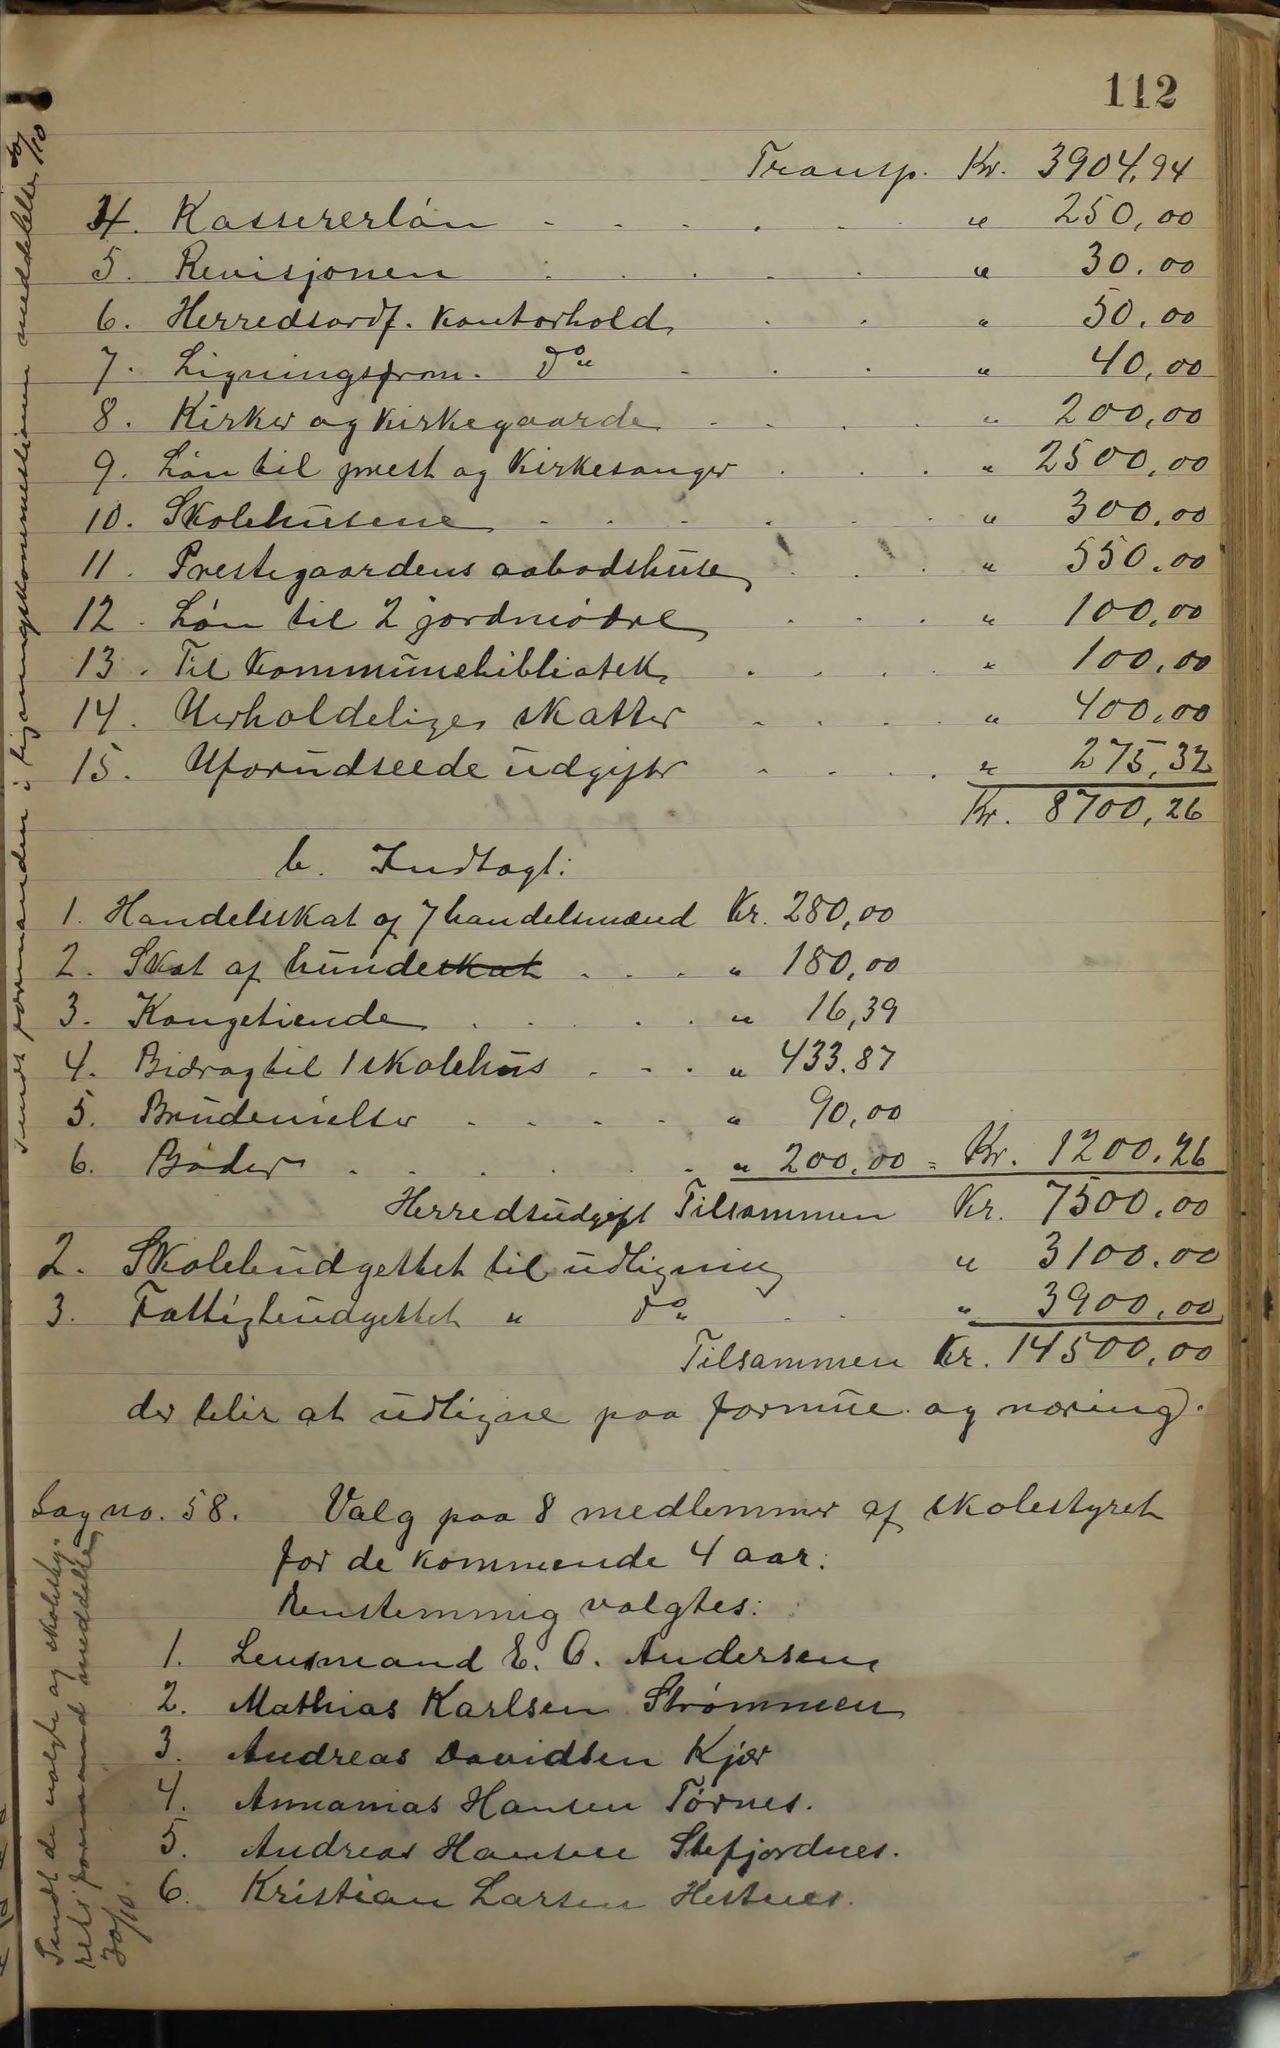 112
Transp. Kr. 3904,94
4. Kassererløn . . . . . " 250,00
5. Revisjonen . . . . . " 30.00
6. Herredsordf. Kontorhold . . " 50.00
7. Ligningsfrom. do " . . . " 40,00
8. Kirker og Kirkegaarde . . . . " 200,00
9. Løn til prest og Kirkesanger . . . " 2500,00
10. Skolehusene . . . . . . " 300.00
11. Prestegaardens aabodshuse . . . " 550.00
12. Løn til 2 jordmødre . . . " 100,00
13. Til Kommunebibliotek . . . . " 100,00
14. Uerholdelige skatter . . . . " 400,00
15. Uforudseede udgifter . . . . " 275,32
Kr. 8700,26
b. Indtægt:
1. Handelsskat af 7 handelsmænd Kr. 280,00
2. Skat af hundeskat . . . " 180,00
3. Kongetiende . . . . . " 16,39
4. Bidrag til 1 skolehus . . . " 433.87
5. Brudevielser . . . . " 90,00
6. Bøder . . . . . . " 200,00 = Kr. 1200.26
Herredsudgift Tilsammen Kr. 7500,00
2. Skolebudgettet til udligning " 3100.00
3. Fattigbudgettet " do " . . " 3900,00
Tilsammen Kr. 14500,00
der blir at udligne paa formue og næring).
Sag no. 58. Valg paa 8 medlemmer af skolestyret
for de kommende 4 aar:
Enstemmig valgtes:
1. Lensmand E. O. Andersen
2. Mathias Karlsen Strømmen
3. Andreas Davidsen Kjær
4. Annanias Hansen Tørnes.
5. Andreas Hansen Stefjordnes.
6. Kristian Larsen Hestnes.
Sendt formanden i ligningskommissionen meddelelse 30/10
Sendt de valgte og skolesty-
rets formand meddelelse
30/10.